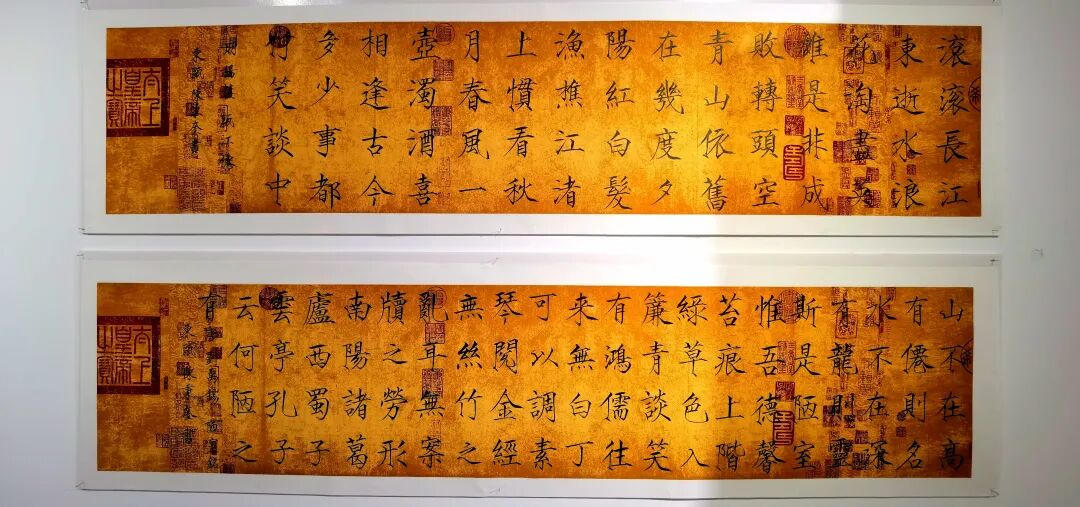 滾滾長江
東逝水浪
花淘盡英
雄是非成
敗轉頭空
青山依舊
在幾度夕
陽紅白髮
漁樵江渚
上慣看秋
月春風一
壺濁酒喜
相逢古今
多少事都
付笑談中
太上皇帝之寶
山不在高
有僊則名
水不在深
有龍則靈
斯是陋室
惟吾德馨
苔痕上階
綠草色入
簾青談笑
有鴻儒往
来無白丁
可以調素
琴閱金經
無絲竹之
亂耳無案
牘之勞形
南陽諸葛
廬西蜀子
雲亭孔子
云何陋之
有
太上皇帝之寶